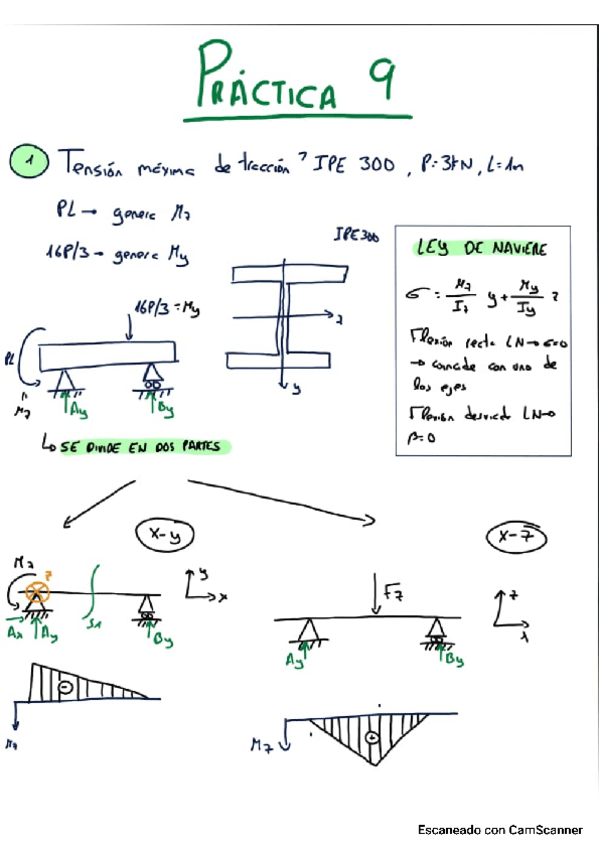 PRÁCTICA 9
1 Tensión máxima de tracción? IPE 300, P=3kN, L=1m
PL → genera Mz
16P/3 → genera My
IPE300
LEY DE NAVIERE
σ = Mz/Iz y + My/Iy z
Flexión recta LN→ σ=0
→ coincide con uno de
los ejes
Flexión desviada LN→
β=0
16P/3 = My
PL
Mz
Ay
By
z
y
↳ SE DIVIDE EN DOS PARTES
x-y
x-z
Mz
z
Ax
Ay
S1
By
y
x
Fz
Ay
By
z
x
Mz
Mz
Escaneado con CamScanner